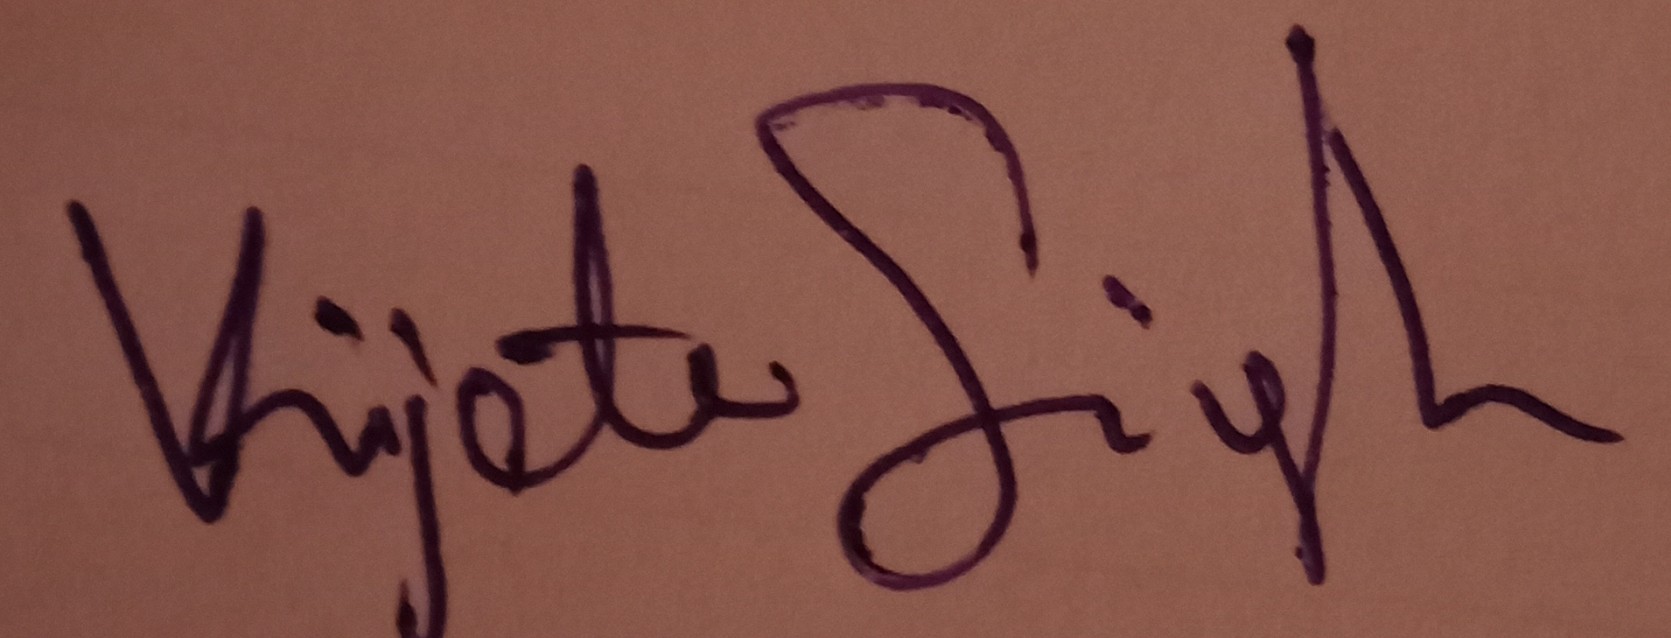 Vijeta Singh